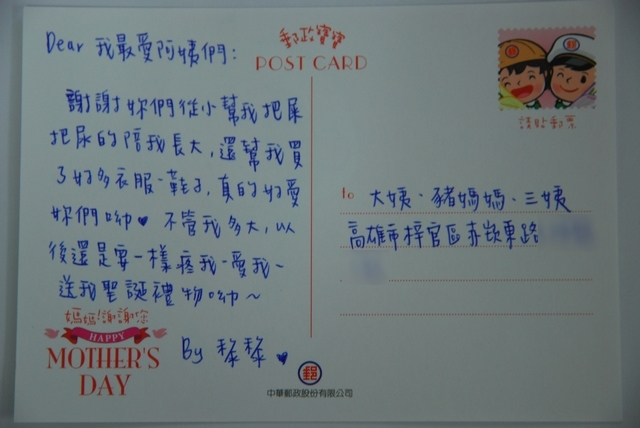 Dear 我最愛阿姨們：
謝謝妳們從小幫我把屎
把尿的陪我長大，還幫我買
了好多衣服、鞋子，真的好愛
妳們呦♥ 不管我多大，以
後還是要一樣疼我、愛我、
送我聖誕禮物呦～
By 秝秝 ♥
媽媽！謝謝您
HAPPY
MOTHER'S
DAY
郵政寶寶
POST CARD
請貼郵票
to 大姨、豬媽媽、三姨
高雄市梓官區赤崁東路
郵
中華郵政股份有限公司